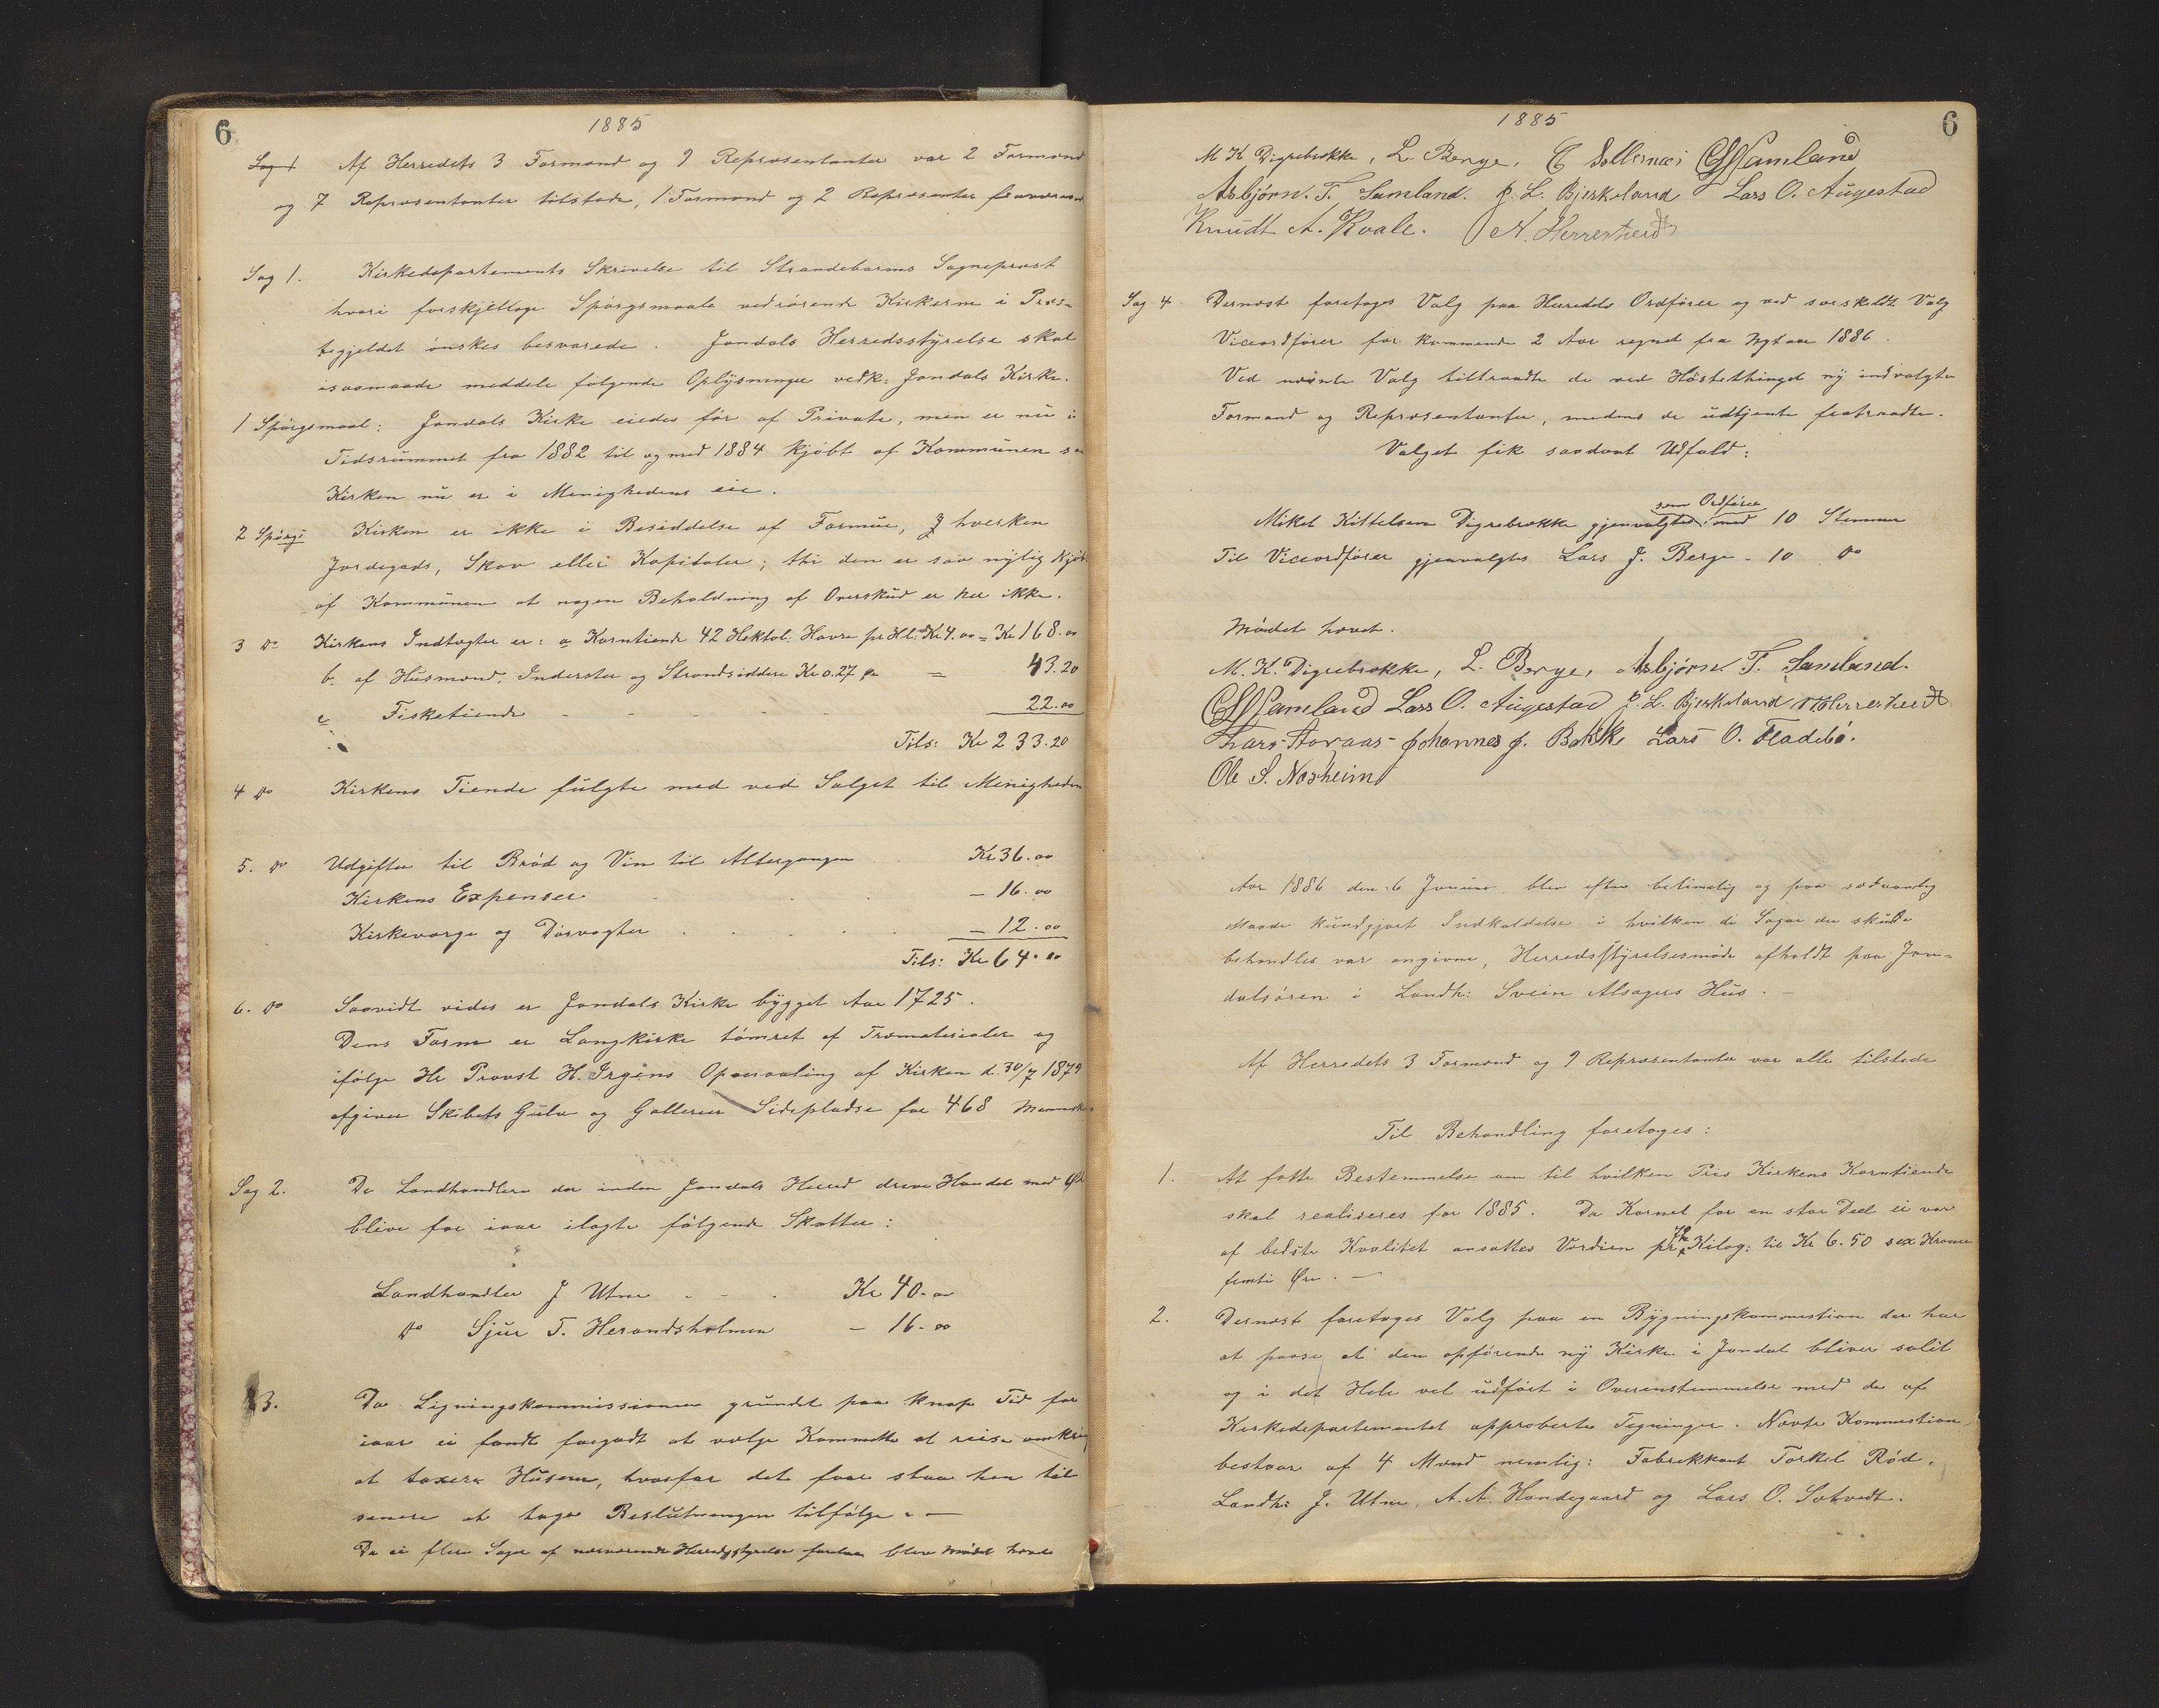 6
1885
Sag 1 Af Herredets 3 Formænd og 9 Repræsentanter var 2 Formænd
og 7 Repræsentanter tilstede, 1 Formand og 2 Repræsenter fraværend
Sag 1. Kirkedepartements Skrivelse til Strandebarms Sogneprest
hvori forskjellige Spörgsmaale vedrörende Kirkerne i Præs=
tegjeldet önskes besvarede. Jondals Herredsstyrelse skal
isaamaade meddele fölgende Oplysninger vedk: Jondals Kirke.
1 Spörgsmaal: Jondals Kirke eiedes för af Private, men er nu i
Tidsrummet fra 1882 til og med 1884 kjöbt af Kommunen saa
Kirken nu er i Menighedens eie.
2 Spörgs Kirken er ikke i Besiddelse af Formue, hverken
Jordegods, Skov eller Kapitaler; thi den er saa nylig Kjöbt
af Kommunen at nogen Beholdning af Overskud er her ikke.
3 do Kirkens Indtægter er: a Korntiende 42 Hektol: Havre pr Hl: Kr 4.00 = Kr 168.00
b. af Husmænd, Inderster og Strandsiddere Kr 0.27 = 43.20
c Fisketiende - - - - - 22.00
Tils: Kr 233.20
4 do Kirkens Tiende fulgte med ved Salget til Menigheden
5. do Udgifter til Bröd og Vin til Altergangen Kr 36.00
Kirkens Expenser - 16.00
Kirkeværge og Dörvogter - 12.00
Tils: Kr 64.00
6. do Saavidt vides er Jondals Kirke bygget Aar 1725.
Dens Form er Langkirke tömret af Træmaterialer og
ifölge Hr Provst H. Irgens Opmaaling af Kirken d. 30/7 1879
afgiver Skibets Gulv og Gallerier Sidepladse for 468 Mennesker
Sag 2. De Landhandlere der inden Jondals Herred drive Handel med Öl
blive for iaar ilagte fölgende Skatter:
Landhandler J Utne - - - Kr 40.00
do Sjur T. Herandsholmen - 16.00
3. Da Ligningskommissionen grundet paa knap Tid for
iaar ei fandt forgodt at vælge Kommitte at reise omkring
at taxere Husene, hvorfor det faar staa hen til
senere at tage Beslutningen tilfölge. -
Da ei flere Sager af nærværende Herredsstyrelse forelaa blev Mödet hævet
1885
6
M K Digrebrække, L. Berge, Samland
Asbjörn. T. Samland. J. L. Bjerkeland Lars O. Augestad
Knudt A. Kvale. N. Herrestvedt
Sag 4 Dernæst foretoges Valg paa Herredets Ordförer og ved særskildt Valg
Viceordförer for kommende 2 Aar regnet fra Nytaar 1886.
Ved nævnte Valg tiltraadte de ved Höstethinget ny indvalgte
Formænd og Repræsentanter, medens de udtjente fratraadte.
Valget fik saadant Udfald:
som Ordförer
Mikel Kittelsen Digrebrække gjenvalgtes med 10 Stemmer
Til Viceordförer gjenvalgtes Lars J. Berge - 10 do
Mödet hævet.
M. K. Digrebrække, L. Berge, Asbjörn T. Samland.
Samland Lars O. Augestad J. L. Bjerkeland N Herrestvedt
Lars Aavaas Johannes J. Bakke Lars O. Fladebö.
Ole S. Næsheim
Aar 1886 den 6 Januar blev efter betimelig og paa sædvanlig
Maade kundgjort Indkaldelse i hvilken de Sager der skulde
behandles var angivne, Herredsstyrelsesmöde afholdt paa Jon=
dalsören i Landh: Svein Alsagers Hus. -
Af Herredets 3 Formænd og 9 Repræsentanter var alle tilstede
Til Behandling foretages:
1. At fatte Bestemmelse om til hvilken Pris Kirkens Korntiende
skal realiseres for 1885. Da Kornet for en stor Deel ei var
af bedste Kvalitet ansattes Værdien pr Kilog: til Kr 6.50 sex Kroner
femti Öre. -
2. Dernæst foretoges Valg paa en Bygningskommestion der har
at paase at den opförende ny Kirke i Jondal bliver solit
og i det Hele vel udfört i Overenstemmelse med de af
Kirkedepartementet approberte Tegninger. Nævte Kommestion
bestaar af 4 Mænd nemlig: Fabrikkant Torkel Röd,
Landh: J. Utne, A. A. Handegaard og Lars O. Solvedt.